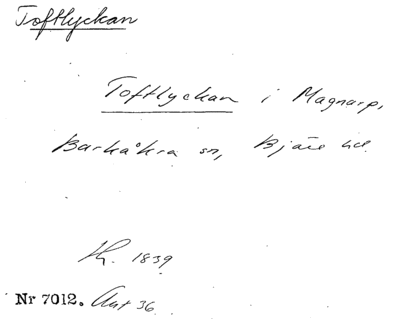 Toftlyckan
Toftlyckan i Magnarp,
Barkåkra sn, Bjäre hd.
1839
Nr 7012. Avt 36